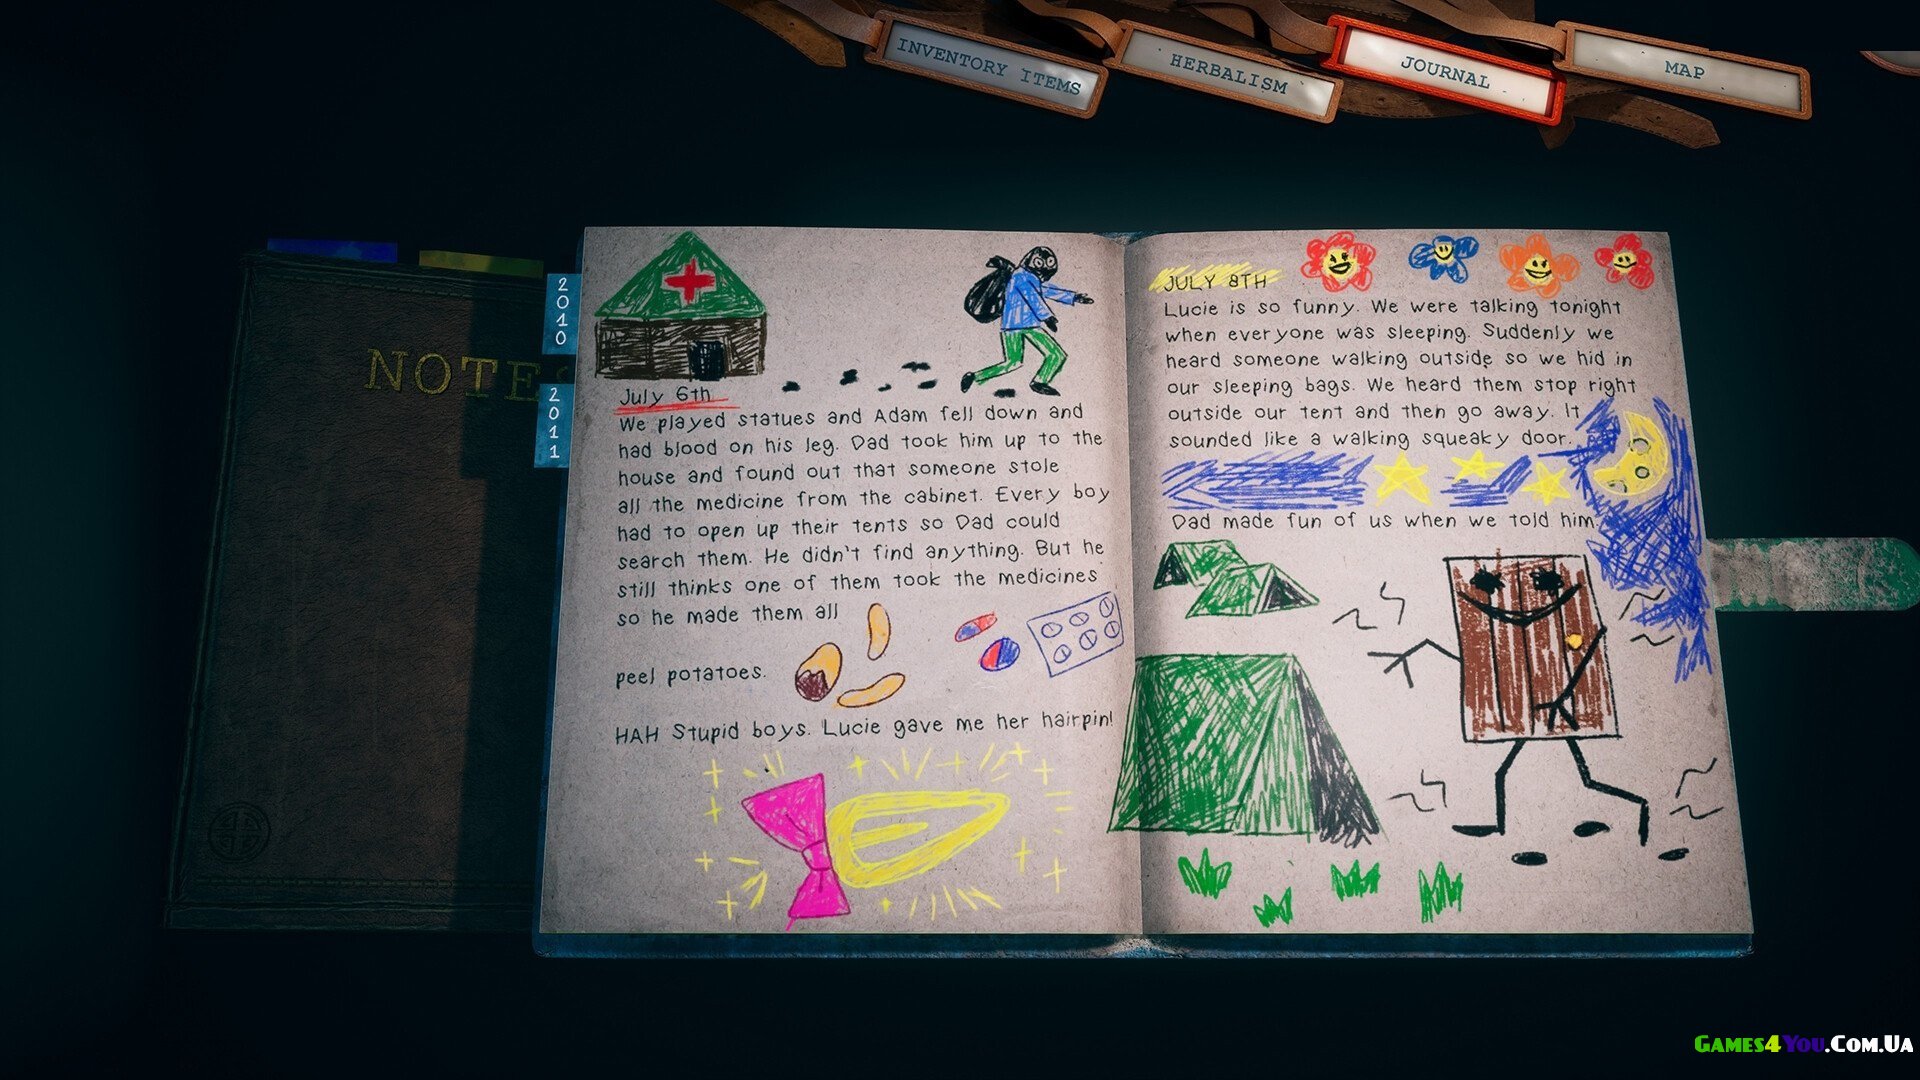 INVENTORY ITEMS
HERBALISM
JOURNAL
MAP
NOTE
2010
2011
July 6th
We played statues and Adam fell down and
had blood on his leg. Dad took him up to the
house and found out that someone stole
all the medicine from the cabinet. Every boy
had to open up their tents so Dad could
search them. He didn't find anything. But he
still thinks one of them took the medicines
so he made them all
peel potatoes.
HAH Stupid boys. Lucie gave me her hairpin!
JULY 8TH
Lucie is so funny. We were talking tonight
when everyone was sleeping. Suddenly we
heard someone walking outside so we hid in
our sleeping bags. We heard them stop right
outside our tent and then go away. It
sounded like a walking squeaky door.
Dad made fun of us when we told him.
Games4You.Com.Ua